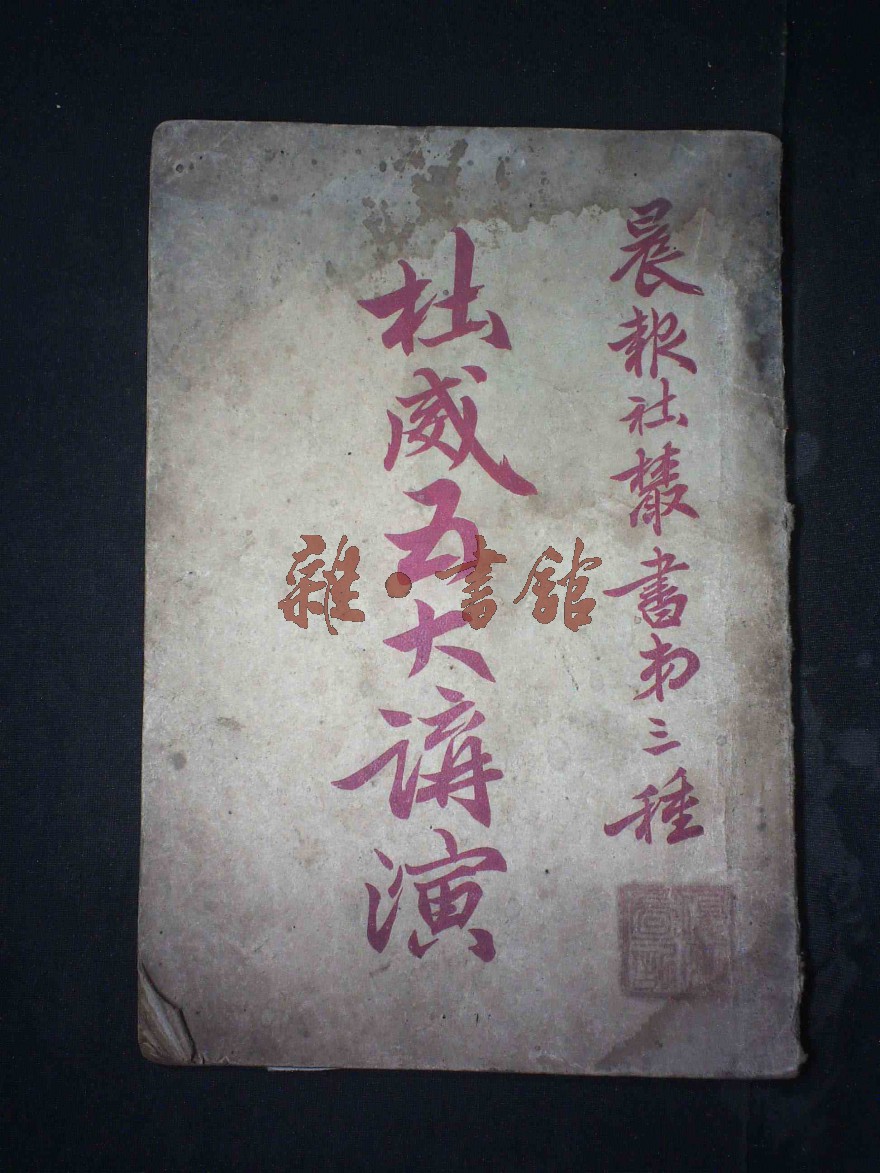 晨報社叢書第三種
杜威五大講演
雜·書館